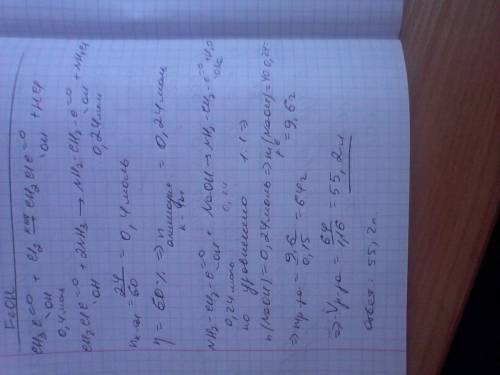 CH3 C=O + Cl2 → CH2Cl C=O + HCl
OH OH
0,4 моль
CH2Cl C=O + 2NH3 → NH2-CH2-C=O + NH4Cl
OH OH
0,24 моль
n к-ты = 24/60 = 0,4 моль
η = 60% ⇒ n = 0,24 моль
NH2-CH2-C=O + NaOH → NH2-CH2-C=O + H2O
OH ONa
0,24 моль 0,24
по уравнению 1:1 ⇒
n(NaOH) = 0,24 моль ⇒ m(NaOH) = 40·0,24 = 9,6 г
⇒ m р-ра = 9,6/0,15 = 64 г
⇒ V р-ра = 64/1,16 = 55,2 мл
Ответ: 55,2